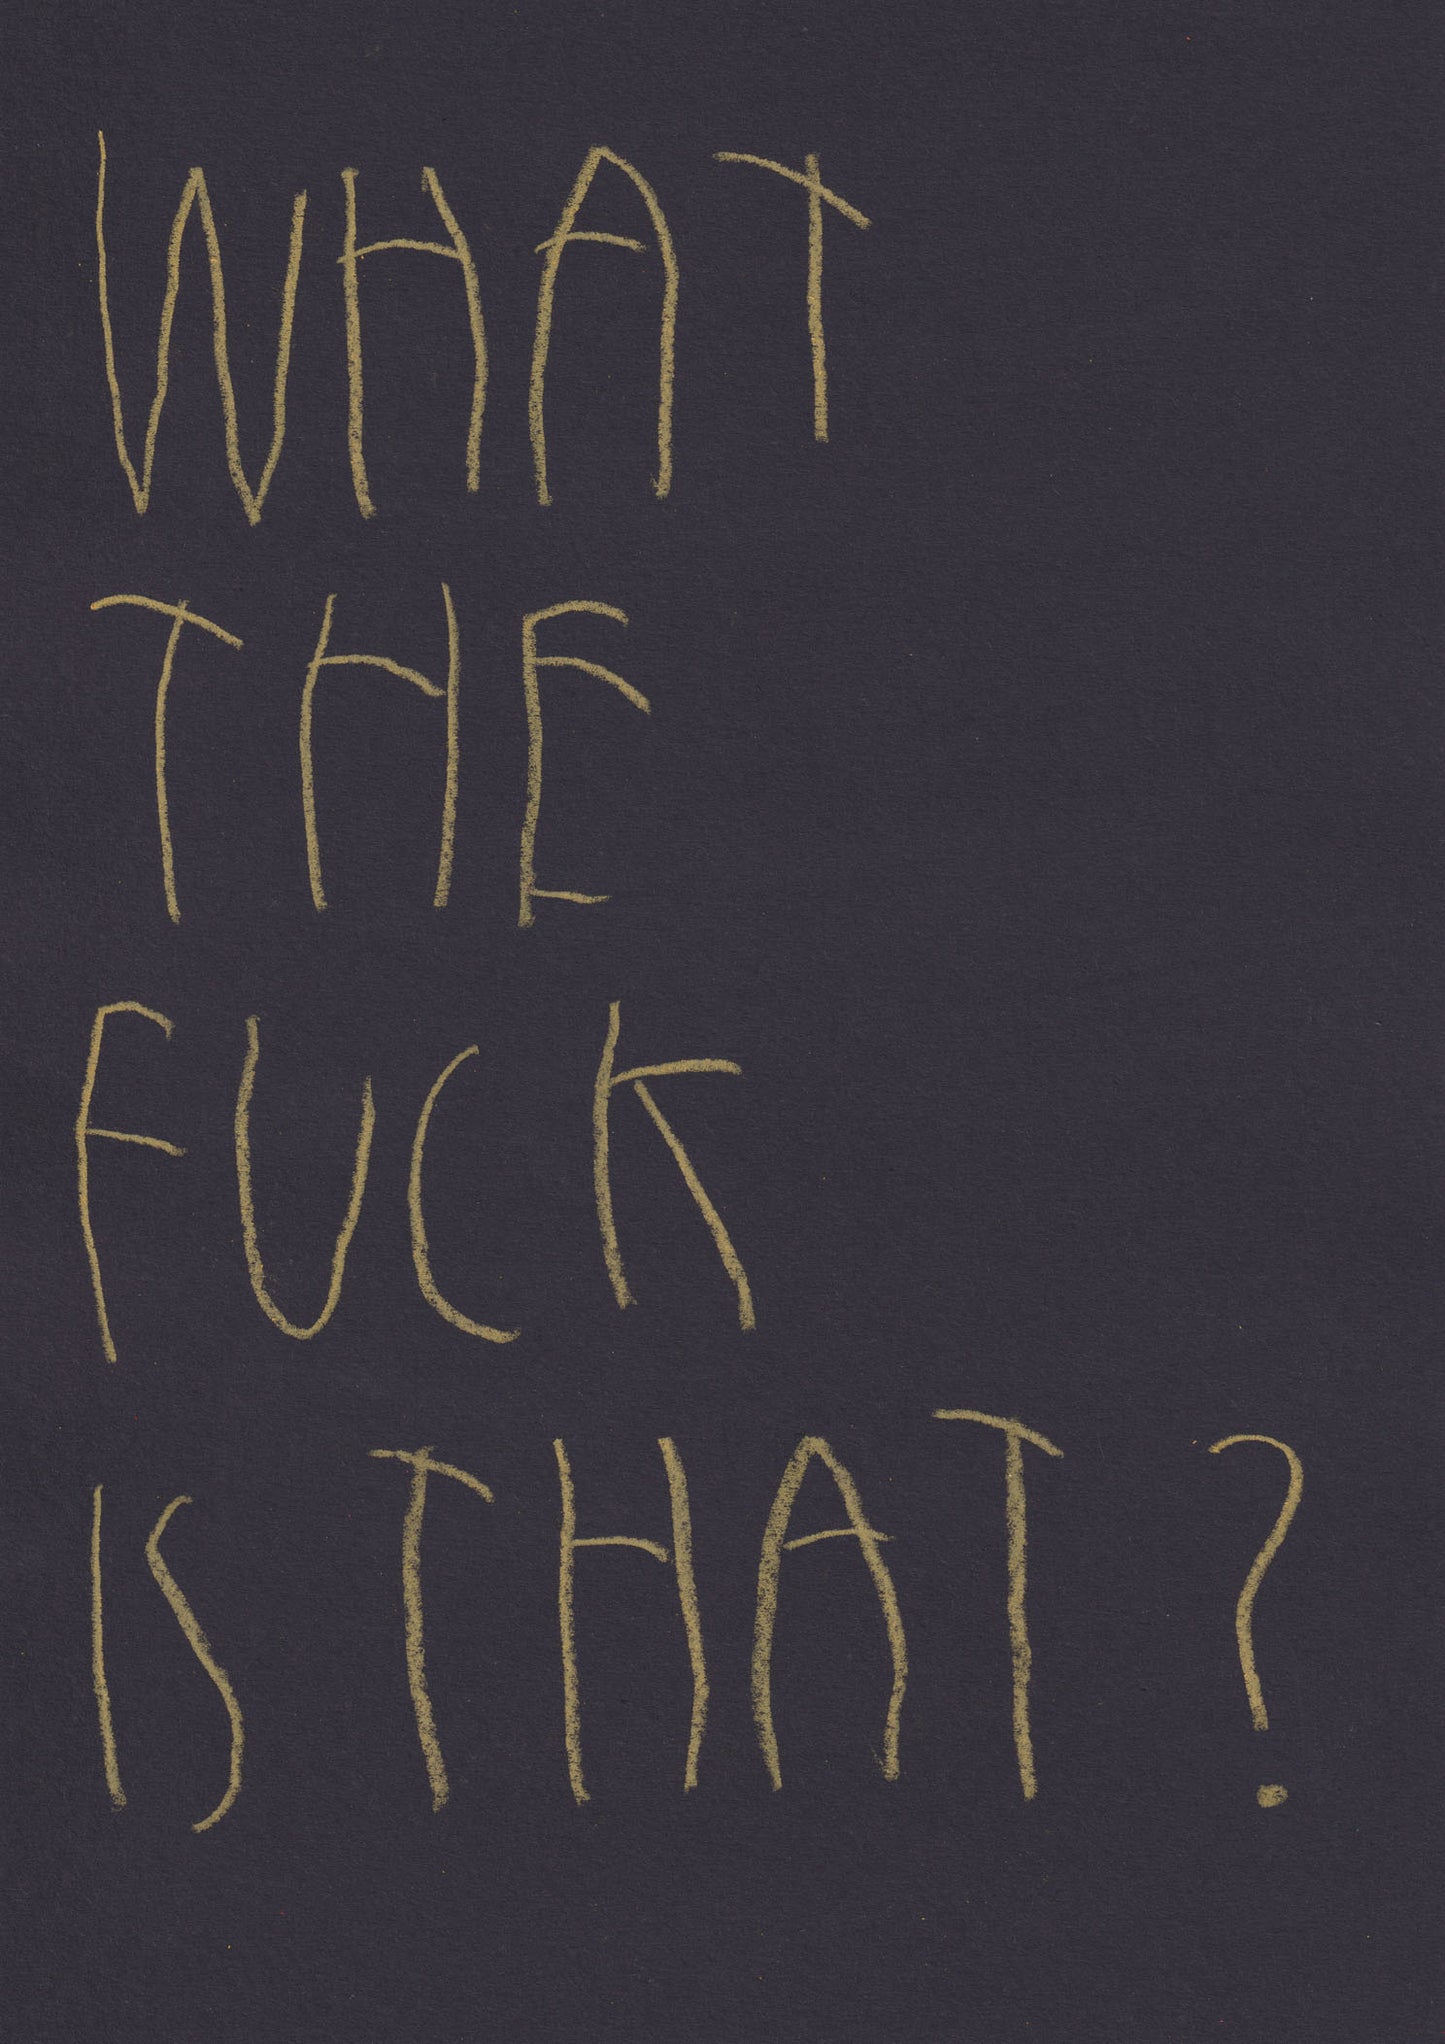 WHAT
THE
FUCK
IS THAT ?